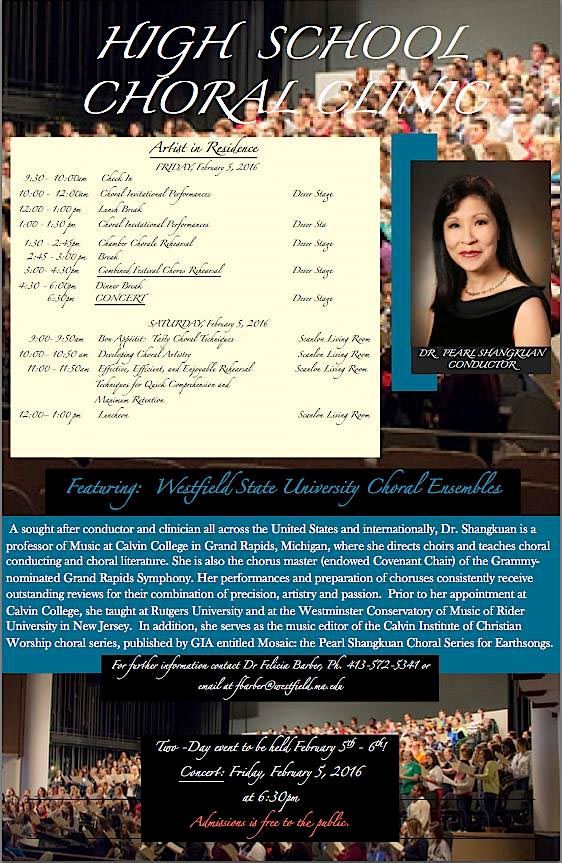 HIGH SCHOOL
CHORAL CLINIC
Artist in Residence
FRIDAY, February 5, 2016
9:30 - 10:00am Check In
10:00 - 12:00am Choral Invitational Performances Dever Stage
12:00 - 1:00 pm Lunch Break
1:00 - 1:30 pm Choral Invitational Performances Dever Sta
1:30 - 2:45pm Chamber Chorale Rehearsal Dever Stage
2:45 - 3:00 pm Break
3:00 - 4:30pm Combined Festival Chorus Rehearsal Dever Stage
4:30 - 6:00pm Dinner Break
6:30pm CONCERT Dever Stage
SATURDAY, February 5, 2016
9:00- 9:50am Bon Appétit: Tasty Choral Techniques Scanlon Living Room
10:00- 10:50 am Developing Choral Artistry Scanlon Living Room
11:00 - 11:50am Effective, Efficient, and Enjoyable Rehearsal Scanlon Living Room
Techniques for Quick Comprehension and
Maximum Retention
12:00- 1:00 pm Luncheon Scanlon Living Room
DR. PEARL SHANGKUAN
CONDUCTOR
Featuring: Westfield State University Choral Ensembles
A sought after conductor and clinician all across the United States and internationally, Dr. Shangkuan is a
professor of Music at Calvin College in Grand Rapids, Michigan, where she directs choirs and teaches choral
conducting and choral literature. She is also the chorus master (endowed Covenant Chair) of the Grammy-
nominated Grand Rapids Symphony. Her performances and preparation of choruses consistently receive
outstanding reviews for their combination of precision, artistry and passion. Prior to her appointment at
Calvin College, she taught at Rutgers University and at the Westminster Conservatory of Music of Rider
University in New Jersey. In addition, she serves as the music editor of the Calvin Institute of Christian
Worship choral series, published by GIA entitled Mosaic: the Pearl Shangkuan Choral Series for Earthsongs.
For further information contact Dr Felicia Barber, Ph. 413-572-5341 or
email at fbarber@westfield.ma.edu
Two -Day event to be held February 5th - 6th!
Concert: Friday, February 5, 2016
at 6:30pm
Admissions is free to the public.